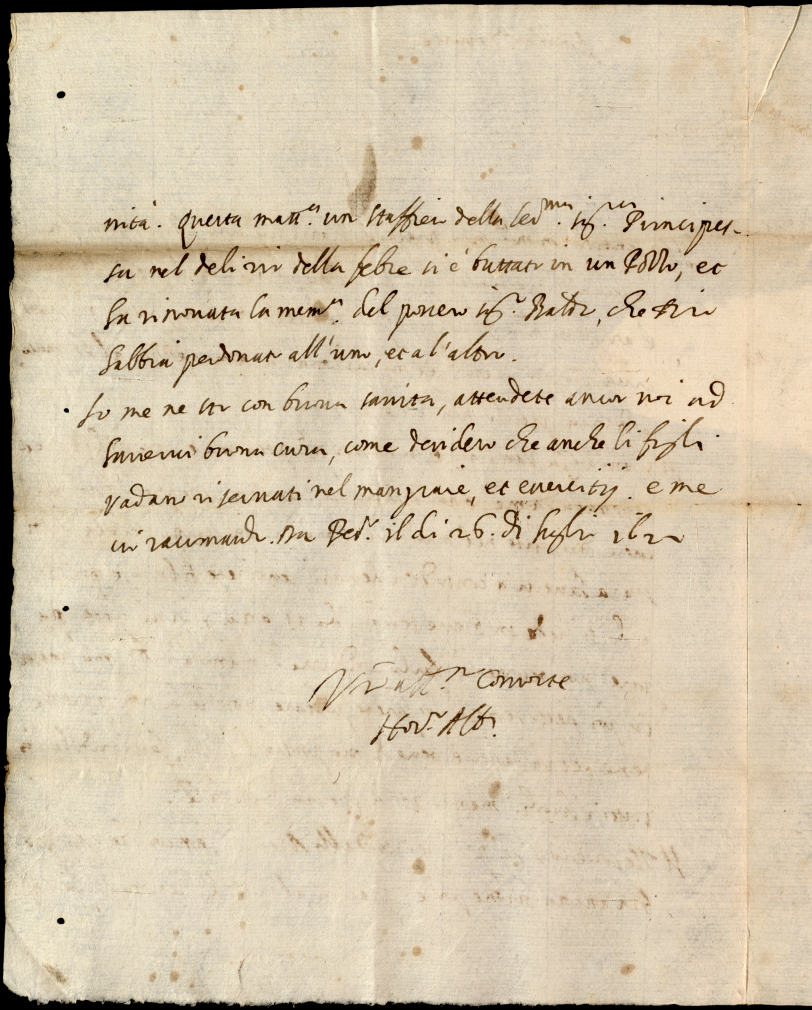 nità. Questa matt.ª un staffier della Ser.ma Sig.ra Principes-
sa nel delirio della febre si è buttato in un Pozzo, et
ha rinovata la mem.ª del povero Sig.r Baldo, che Dio
habbia perdonato all'uno, et a l'altro.
Io me ne sto con buona sanita, attendete ancor voi ad
havervi buona cura, come desidero che anche li figli
vadano riservati nel mangiare, et exercitij. e me
vi racomando. Da il di 26. di luglio
Vro aff.mo Consorte